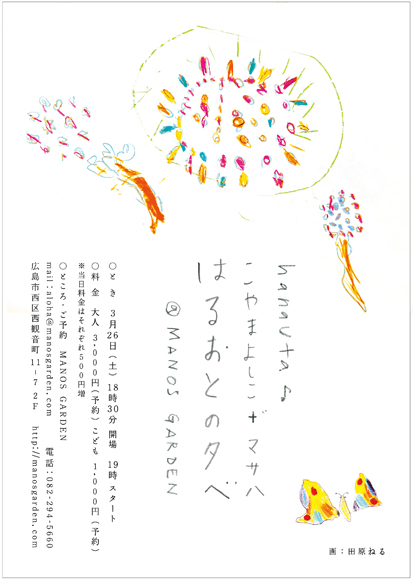 hanauta♪
こやまよしこ + マサハ
はるおとの夕べ
@ MANOS GARDEN
○とき 3月26日(土) 18時30分 開場 19時スタート
○料金 大人 3,000円(予約) こども 1,000円(予約)
※当日料金はそれぞれ500円増
○ところ・ご予約 MANOS GARDEN
mail：aloha@manosgarden.com 電話：082-294-5660
広島市西区西観音町11-7 2F http://manosgarden.com
画：田原ねる